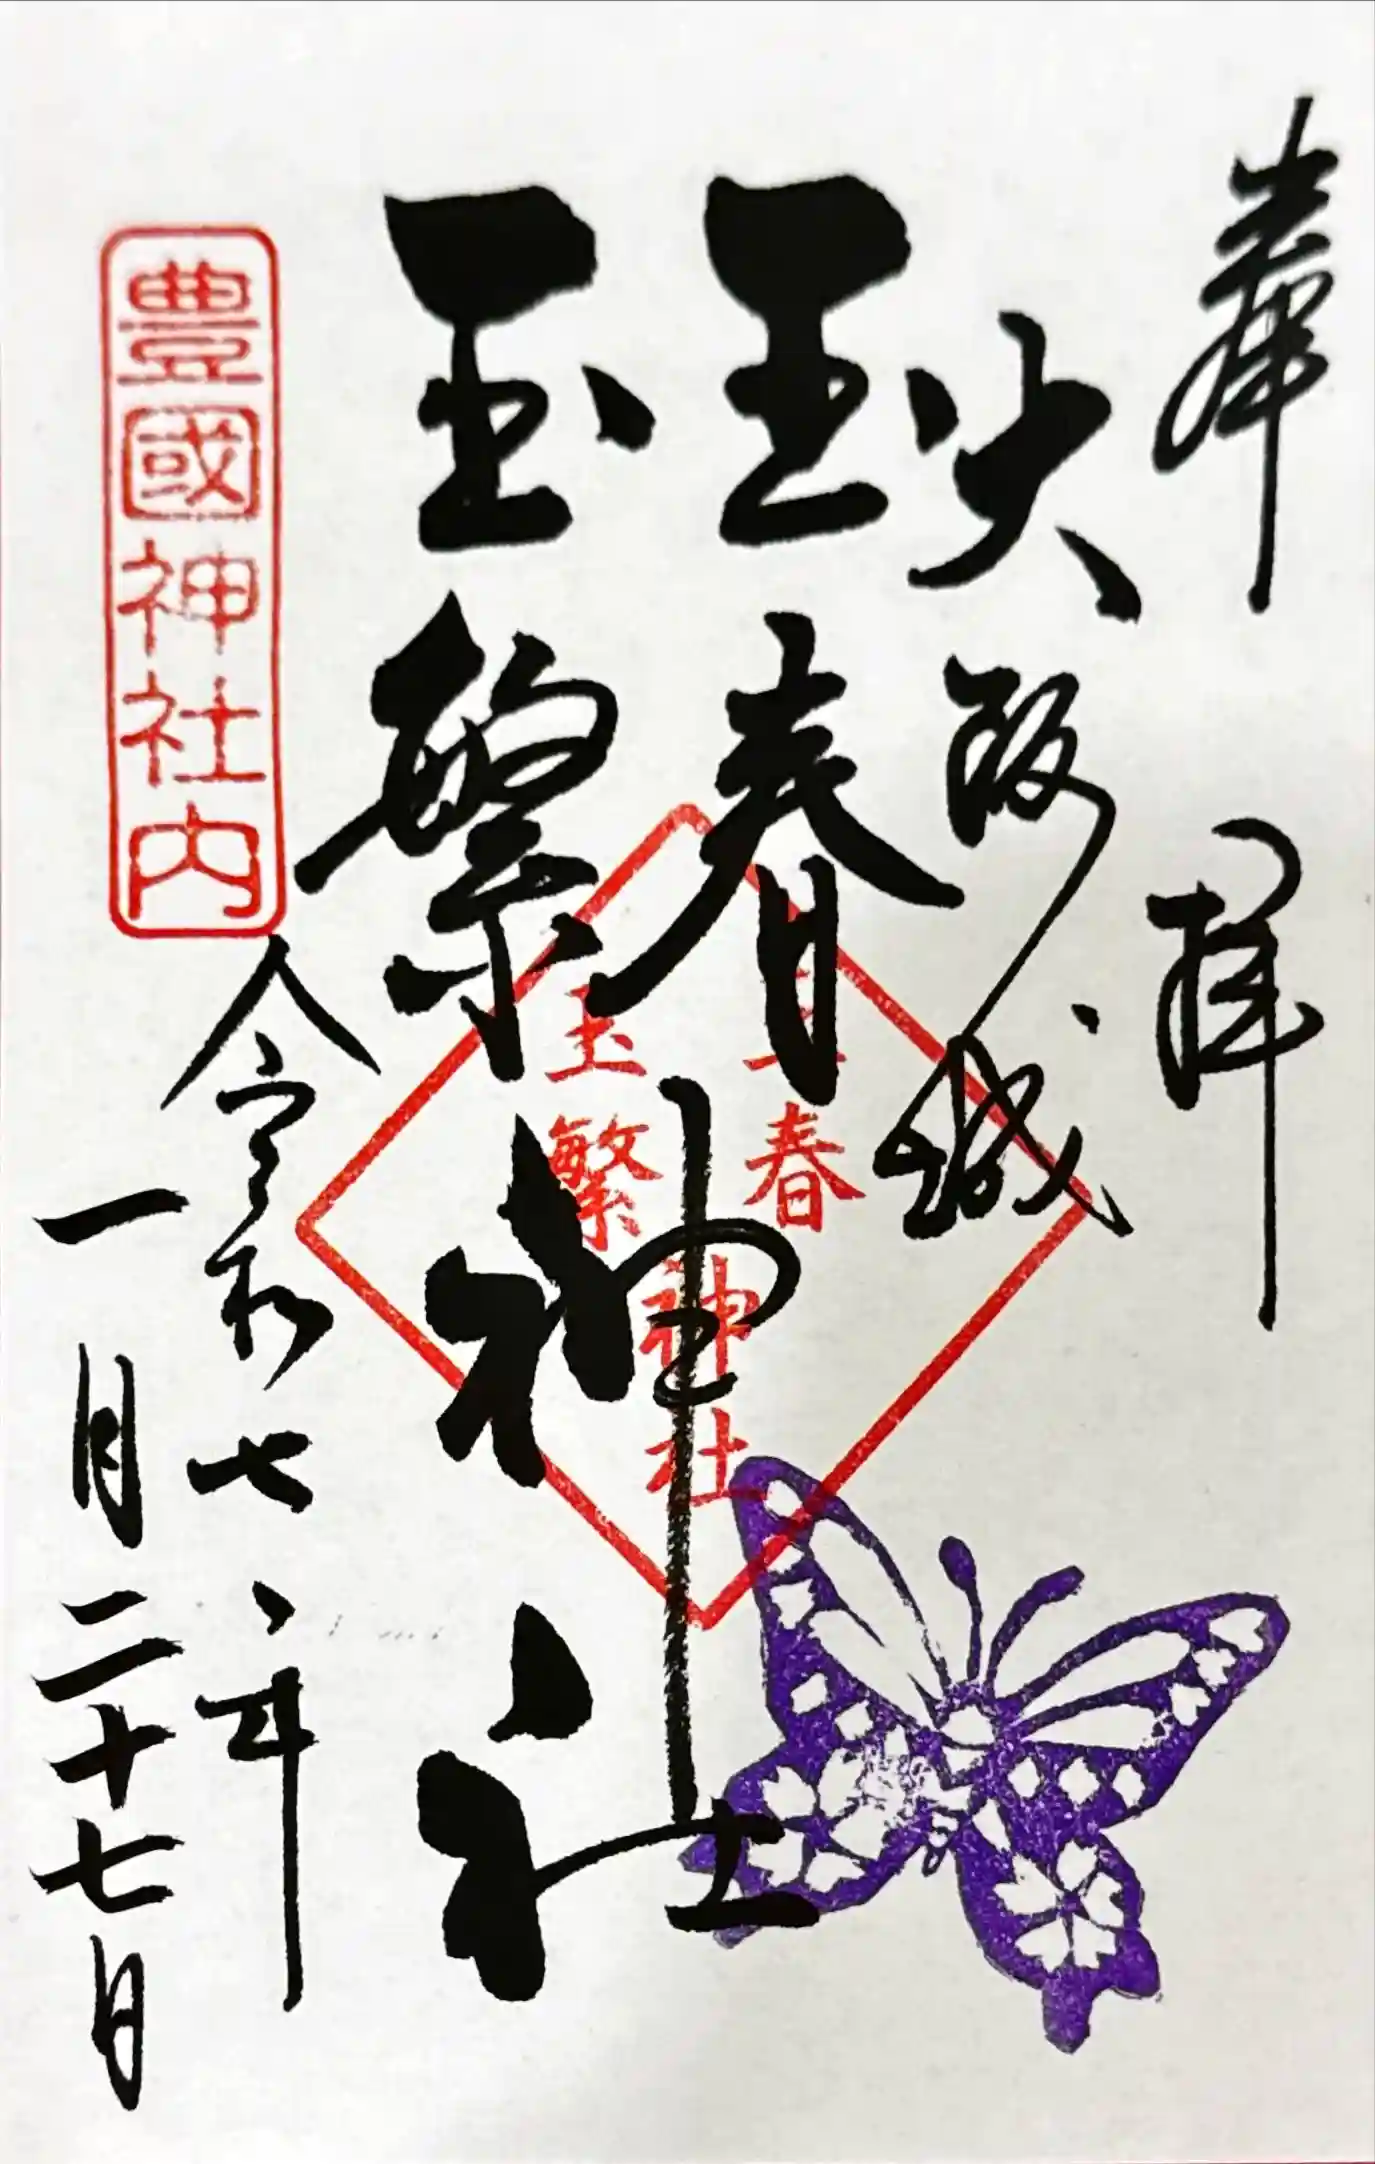 奉拝
大阪城
玉春
玉繁
神社
玉春
玉繁
神社
豊國神社内
令和七年
一月二十七日